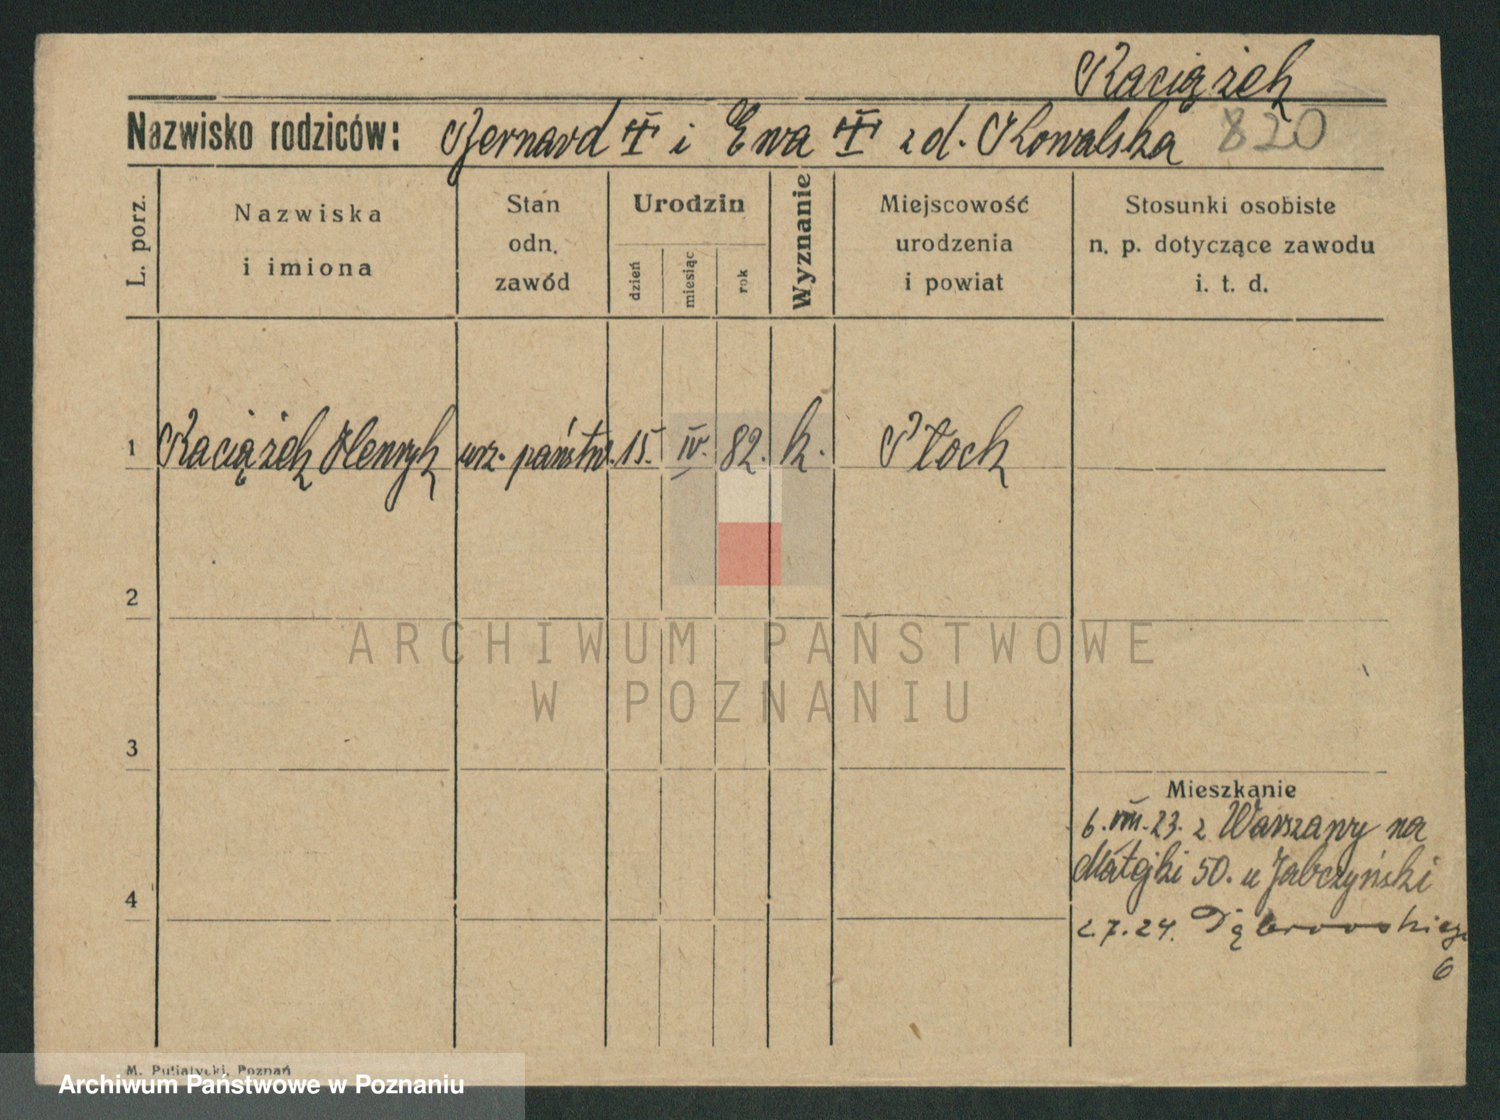 Raciążek
Nazwisko rodziców: Bernard i Ewa z d. Kowalska 820
L. porz.
Nazwiska
i imiona
Stan
odn.
zawód
Urodzin
dzień
miesiąc
rok
Wyznanie
Miejscowość
urodzenia
i powiat
Stosunki osobiste
n. p. dotyczące zawodu
i. t. d.
1 Raciążek Henryk urz. państw. 15. IV. 82. k. Płock
2
ARCHIWUM PAŃSTWOWE
W POZNANIU
3
Mieszkanie
6. VIII. 23. z Warszawy na
Matejki 50. u Jabczyński
4
2.7.24. Dąbrowskiego
6
M. Putiatycki, Poznań
Archiwum Państwowe w Poznaniu